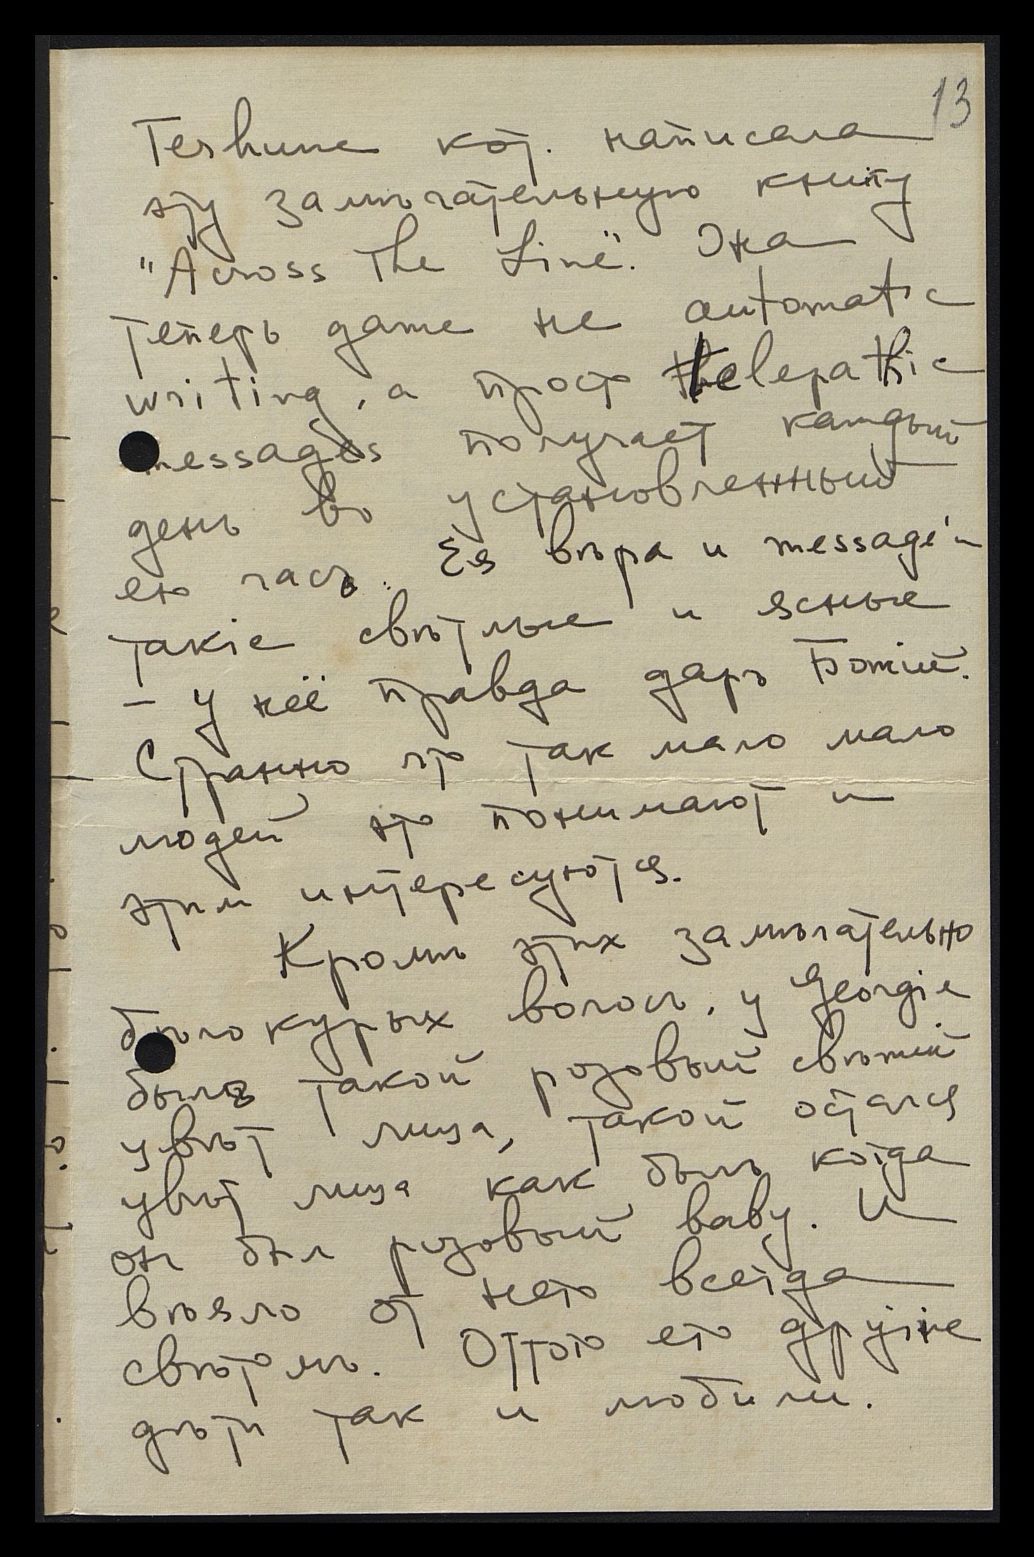 13
Terhune кот. написала
эту замѣчательную книгу
"Across The Line". Она
теперь даже не automatic
writing, а просто thelepathic
messages получает каждый
день во установленный
ею часъ. Ея вѣра и message'и
такіе свѣтлые и ясные
– у неё правда даръ Божій.
Странно что так мало мало
людей это понимают и
этим интересуются.
Кромѣ этих замѣчательно
бѣлокурых волосъ, у Georgie
былъ такой розовый свѣжий
цвѣт лица, такой остался
цвѣт лица как былъ когда
он был розовый baby. И
вѣяло от него всегда
свѣтомъ. Оттого его другіе
дѣти так и любили.